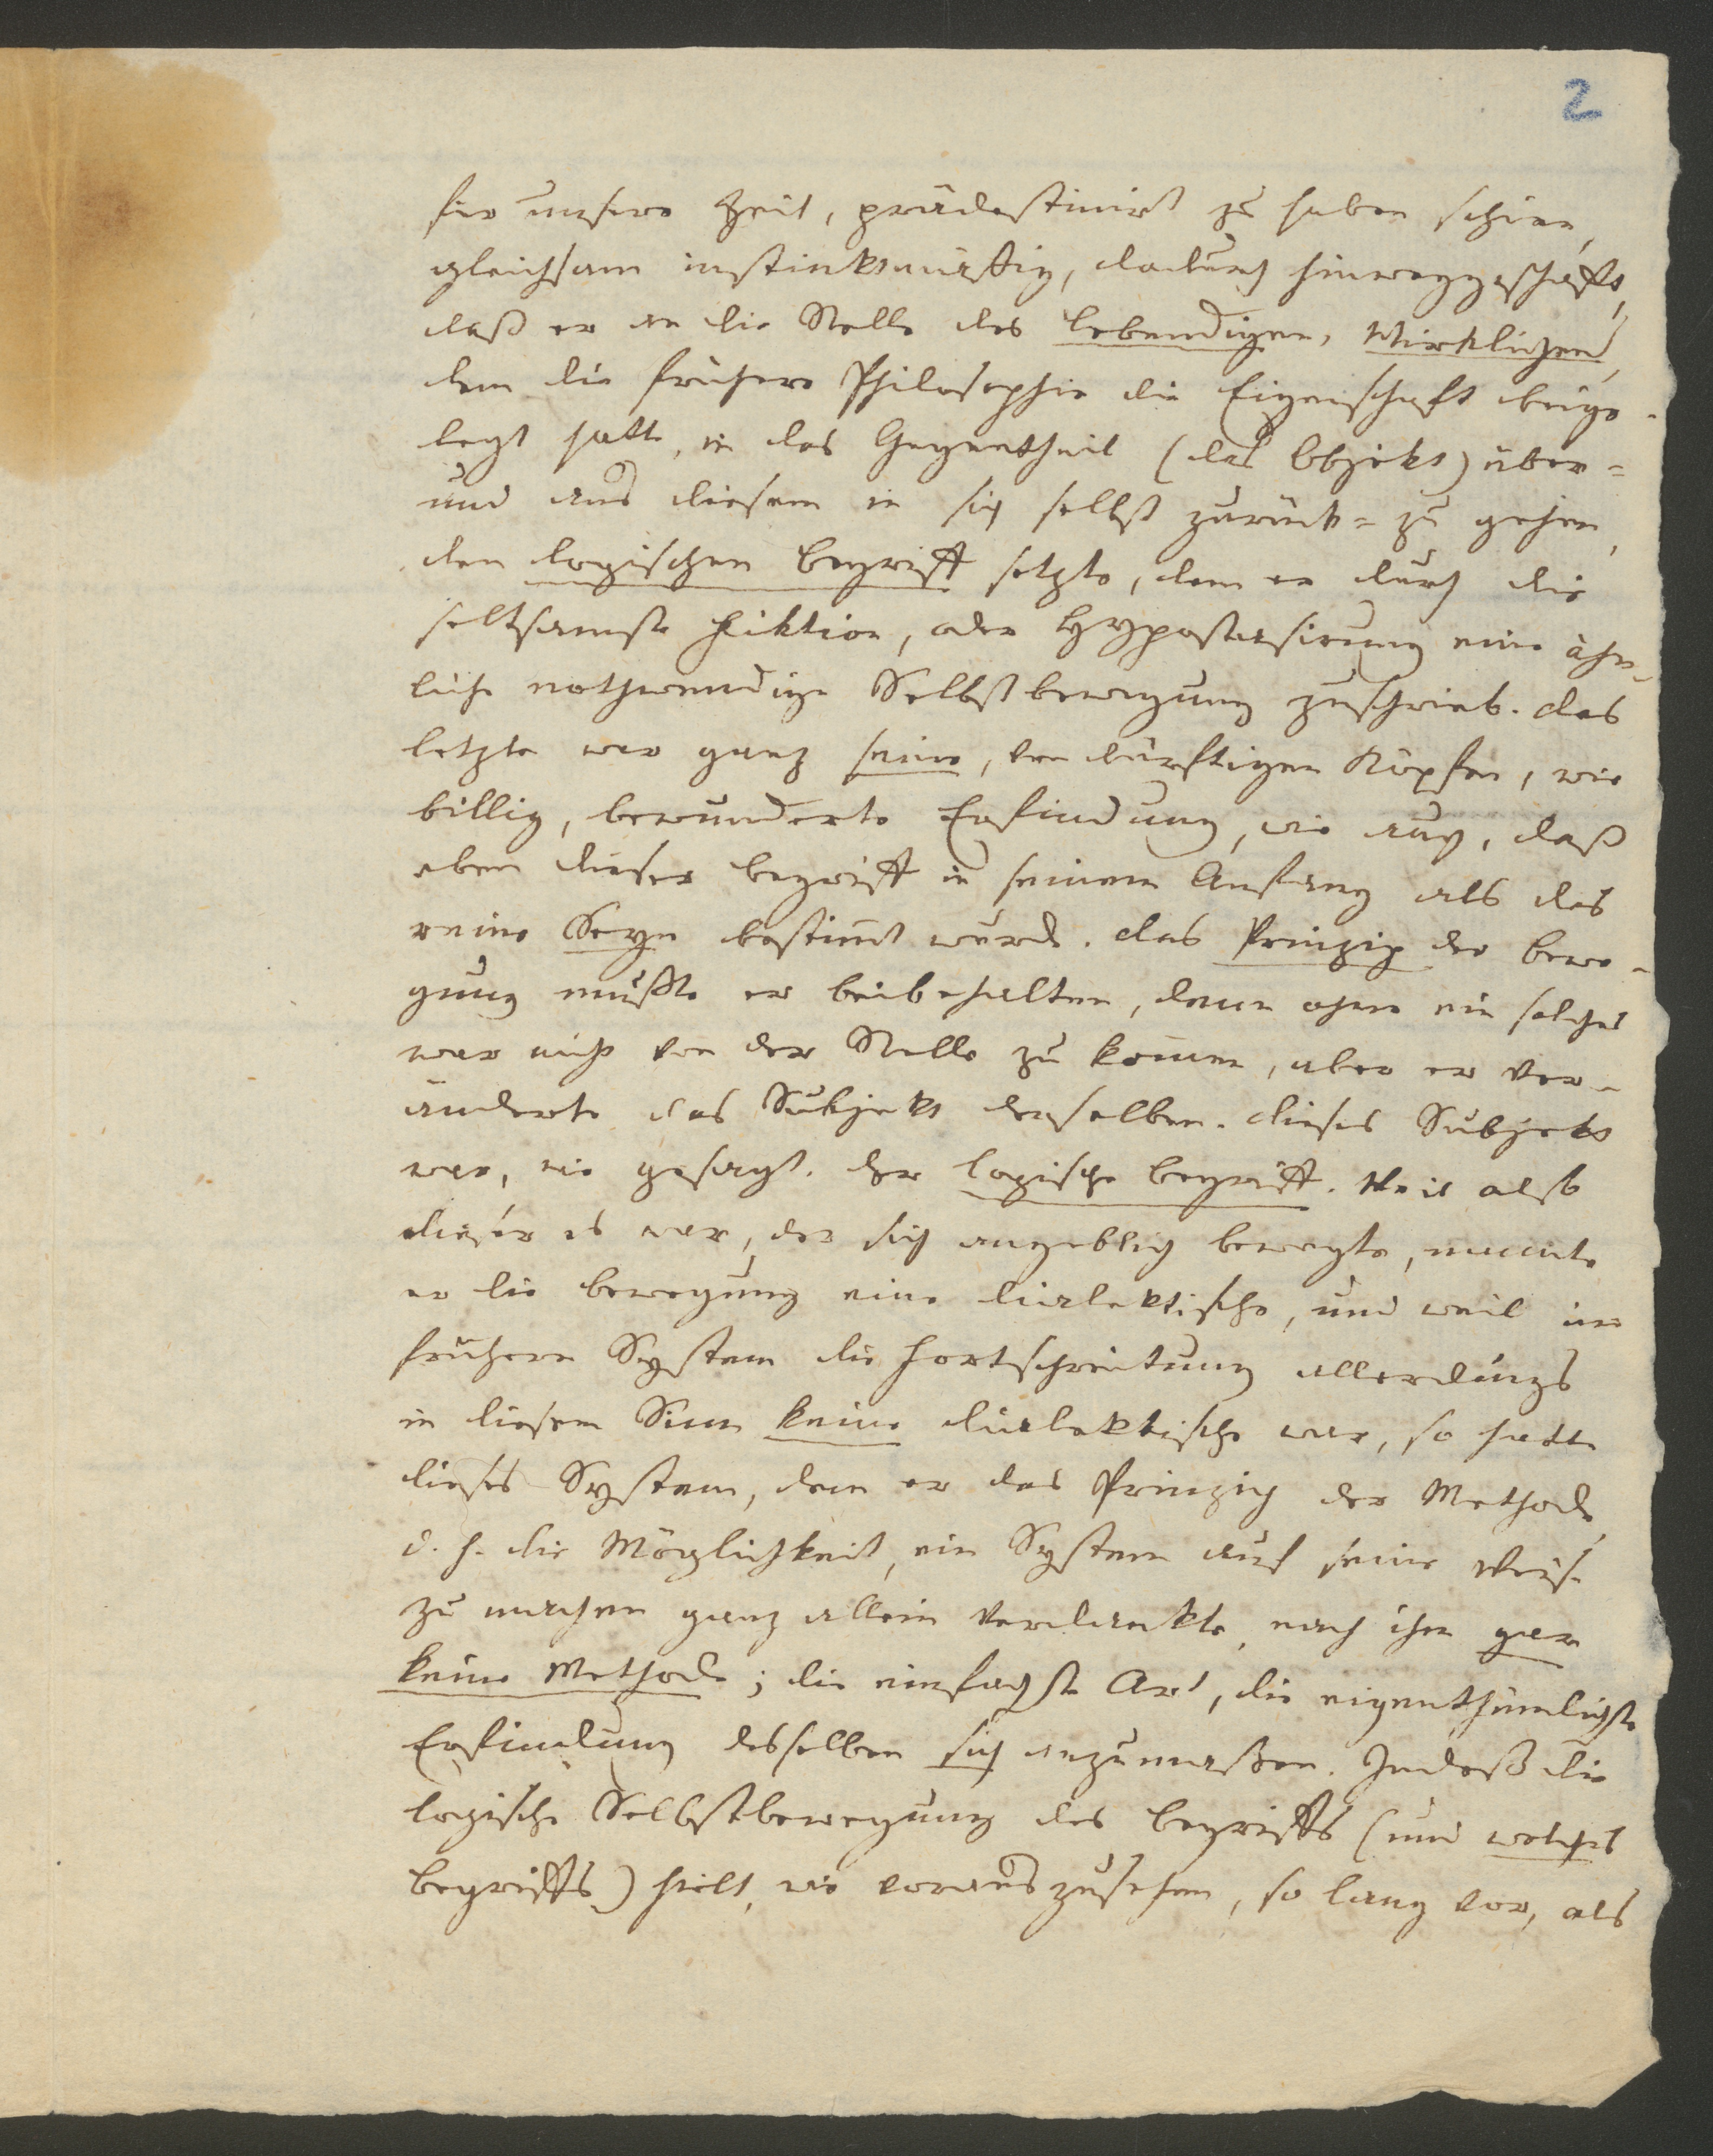 2
für unsere Zeit, prädestinirt zu haben schien,
gleichsam instinktmäßig, dadurch hinweggeschafft,
daß er an die Stelle des lebendigen, Wirklichen,
dem die frühere Philosophie die Eigenschaft beige-
legt hatte, in das Gegentheil (das Objekt) über=
und aus diesem in sich selbst zurück= zu gehen,
den logischen Begriff setzte, dem er durch die
seltsamste Fiktion, oder Hypostasirung eine ähn-
liche nothwendige Selbstbewegung zuschrieb. das
letzte war ganz seine, von dürftigen Köpfen, wie
billig, bewunderte Erfindung, wie auch, daß
eben dieser Begriff in seinem Anfang als das
reine Seyn bestimt wurde. das Prinzip der Bewe-
gung mußte er beibehalten, denn ohne ein solches
war nicht von der Stelle zu komen, aber er ver-
änderte das Subjekt derselben. dieses Subjekt
war, wie gesagt. der logische Begriff. Weil also
dieser es war, der sich angeblich bewegte, nannte
er die Bewegung eine dialektische, und weil im
frühern System die Fortschreitung allerdings
in diesem Sinn keine dialektische war, so hatte
dieses System, dem er das Prinzip der Methode,
d. h. die Möglichkeit, ein System auf seine Weise
zu machen ganz allein verdankte, nach ihm gar
keine Methode; die einfachste Art, die eigenthümlichste
Erfindung desselben sich anzumaßen. Indeß die
logische Selbstbewegung des Begriffs (und welches
Begriffs) hielt, wie vorauszusehen, so lang vor, als